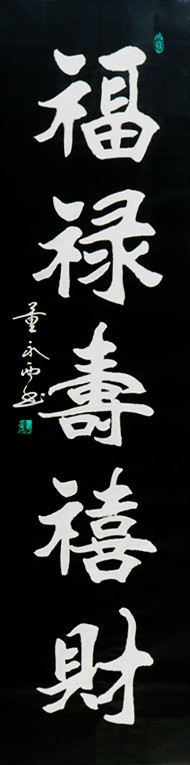 福禄壽禧財
董永西书